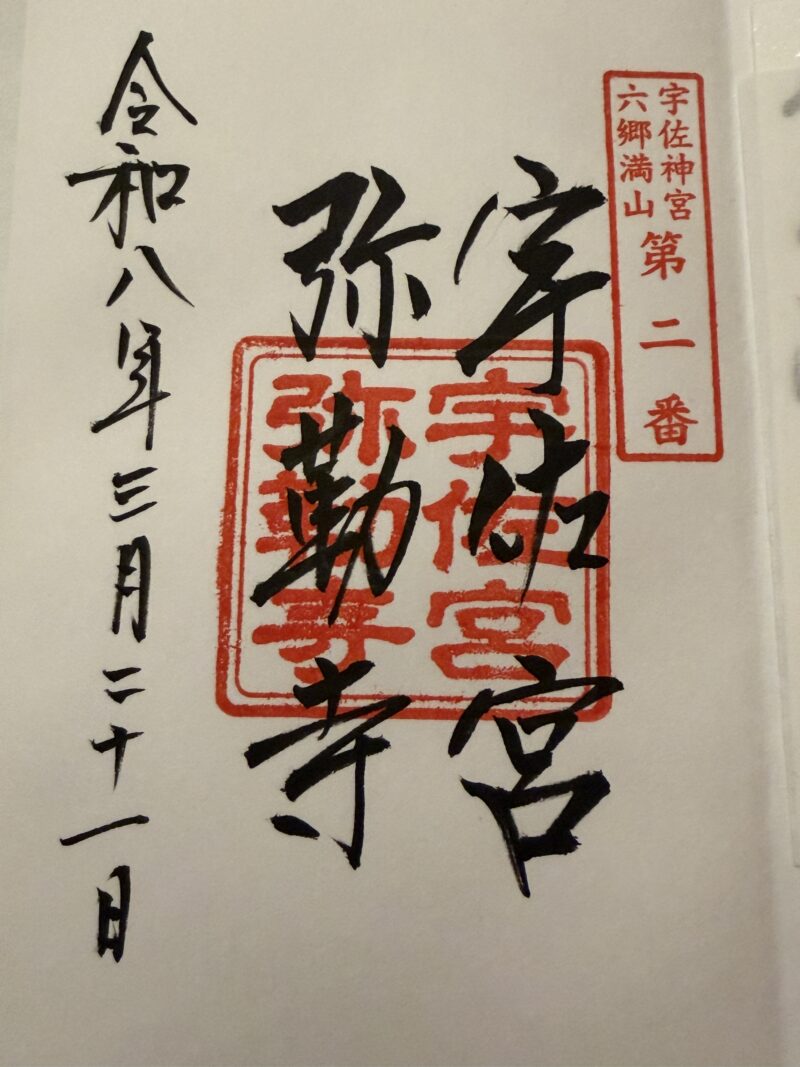 宇佐神宮
六郷満山
第二番
宇佐宮
弥勒寺
宇佐宮
弥勒寺
令和八年三月二十一日